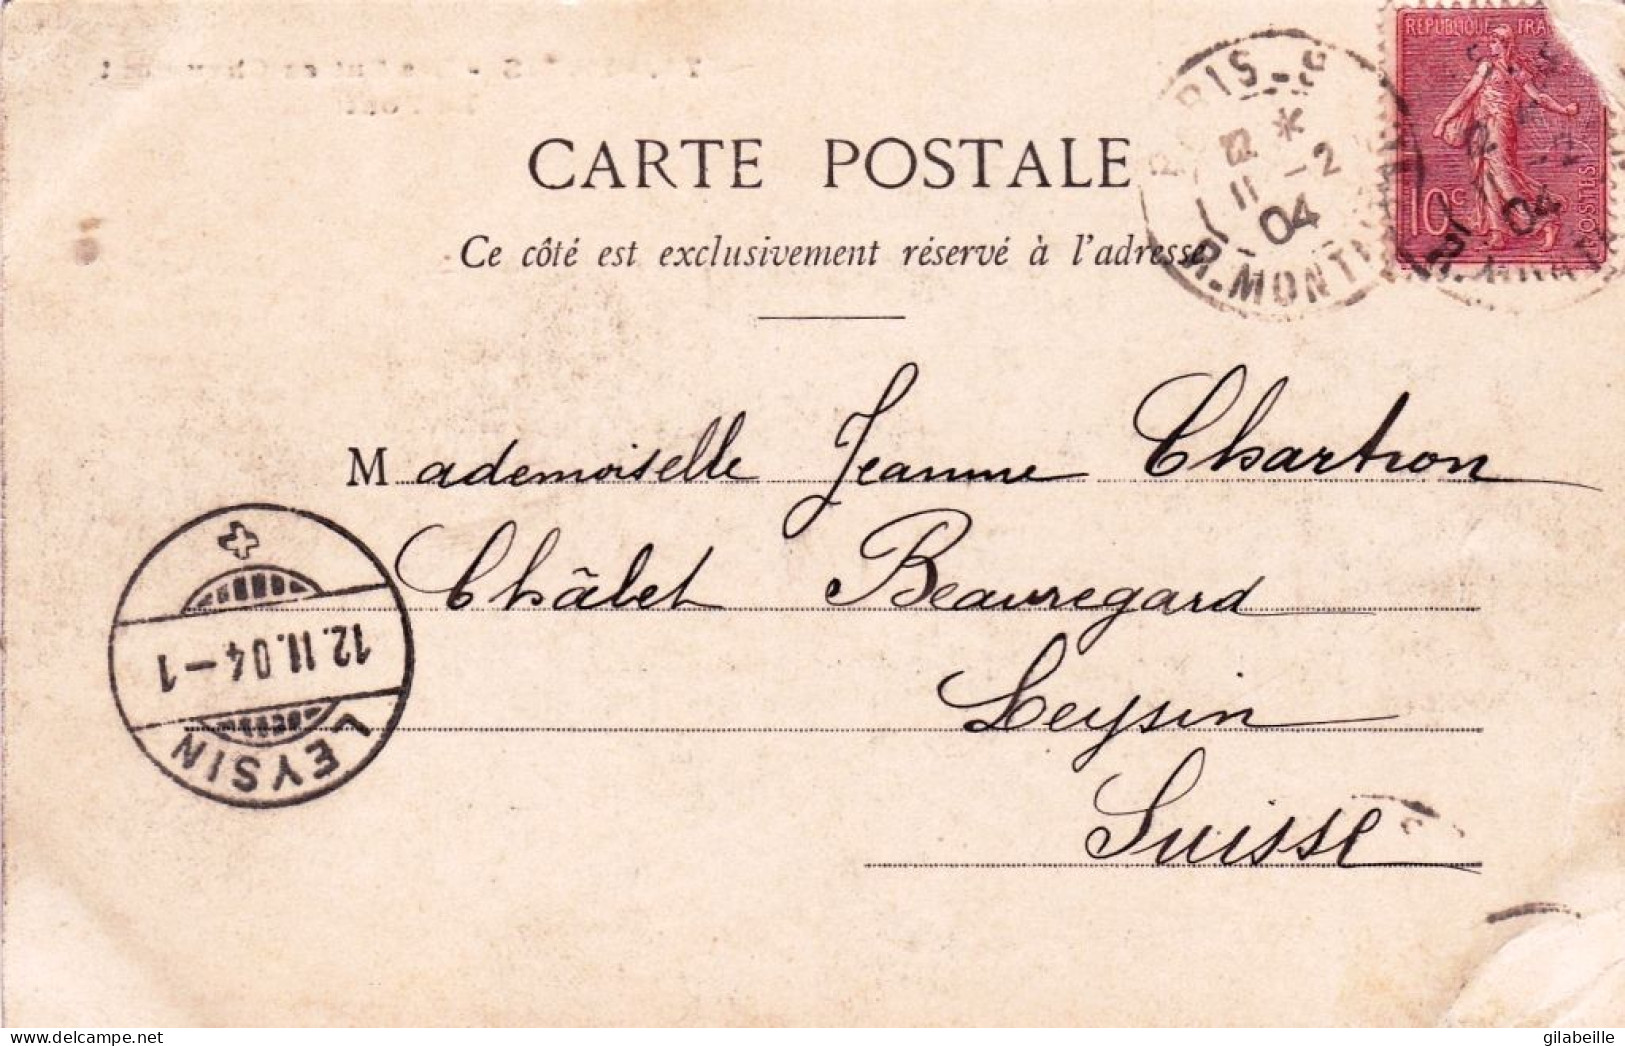 REPUBLIQUE FRA
10c
POSTES
PARIS-9
11 -2
04
R-MONT
CARTE POSTALE
Ce côté est exclusivement réservé à l'adresse
Mademoiselle Jeanne Chartron
Châlet Beauregard
Leysin
Suisse
12.II.04-1
LEYSIN
delcampe.net
gilabeille